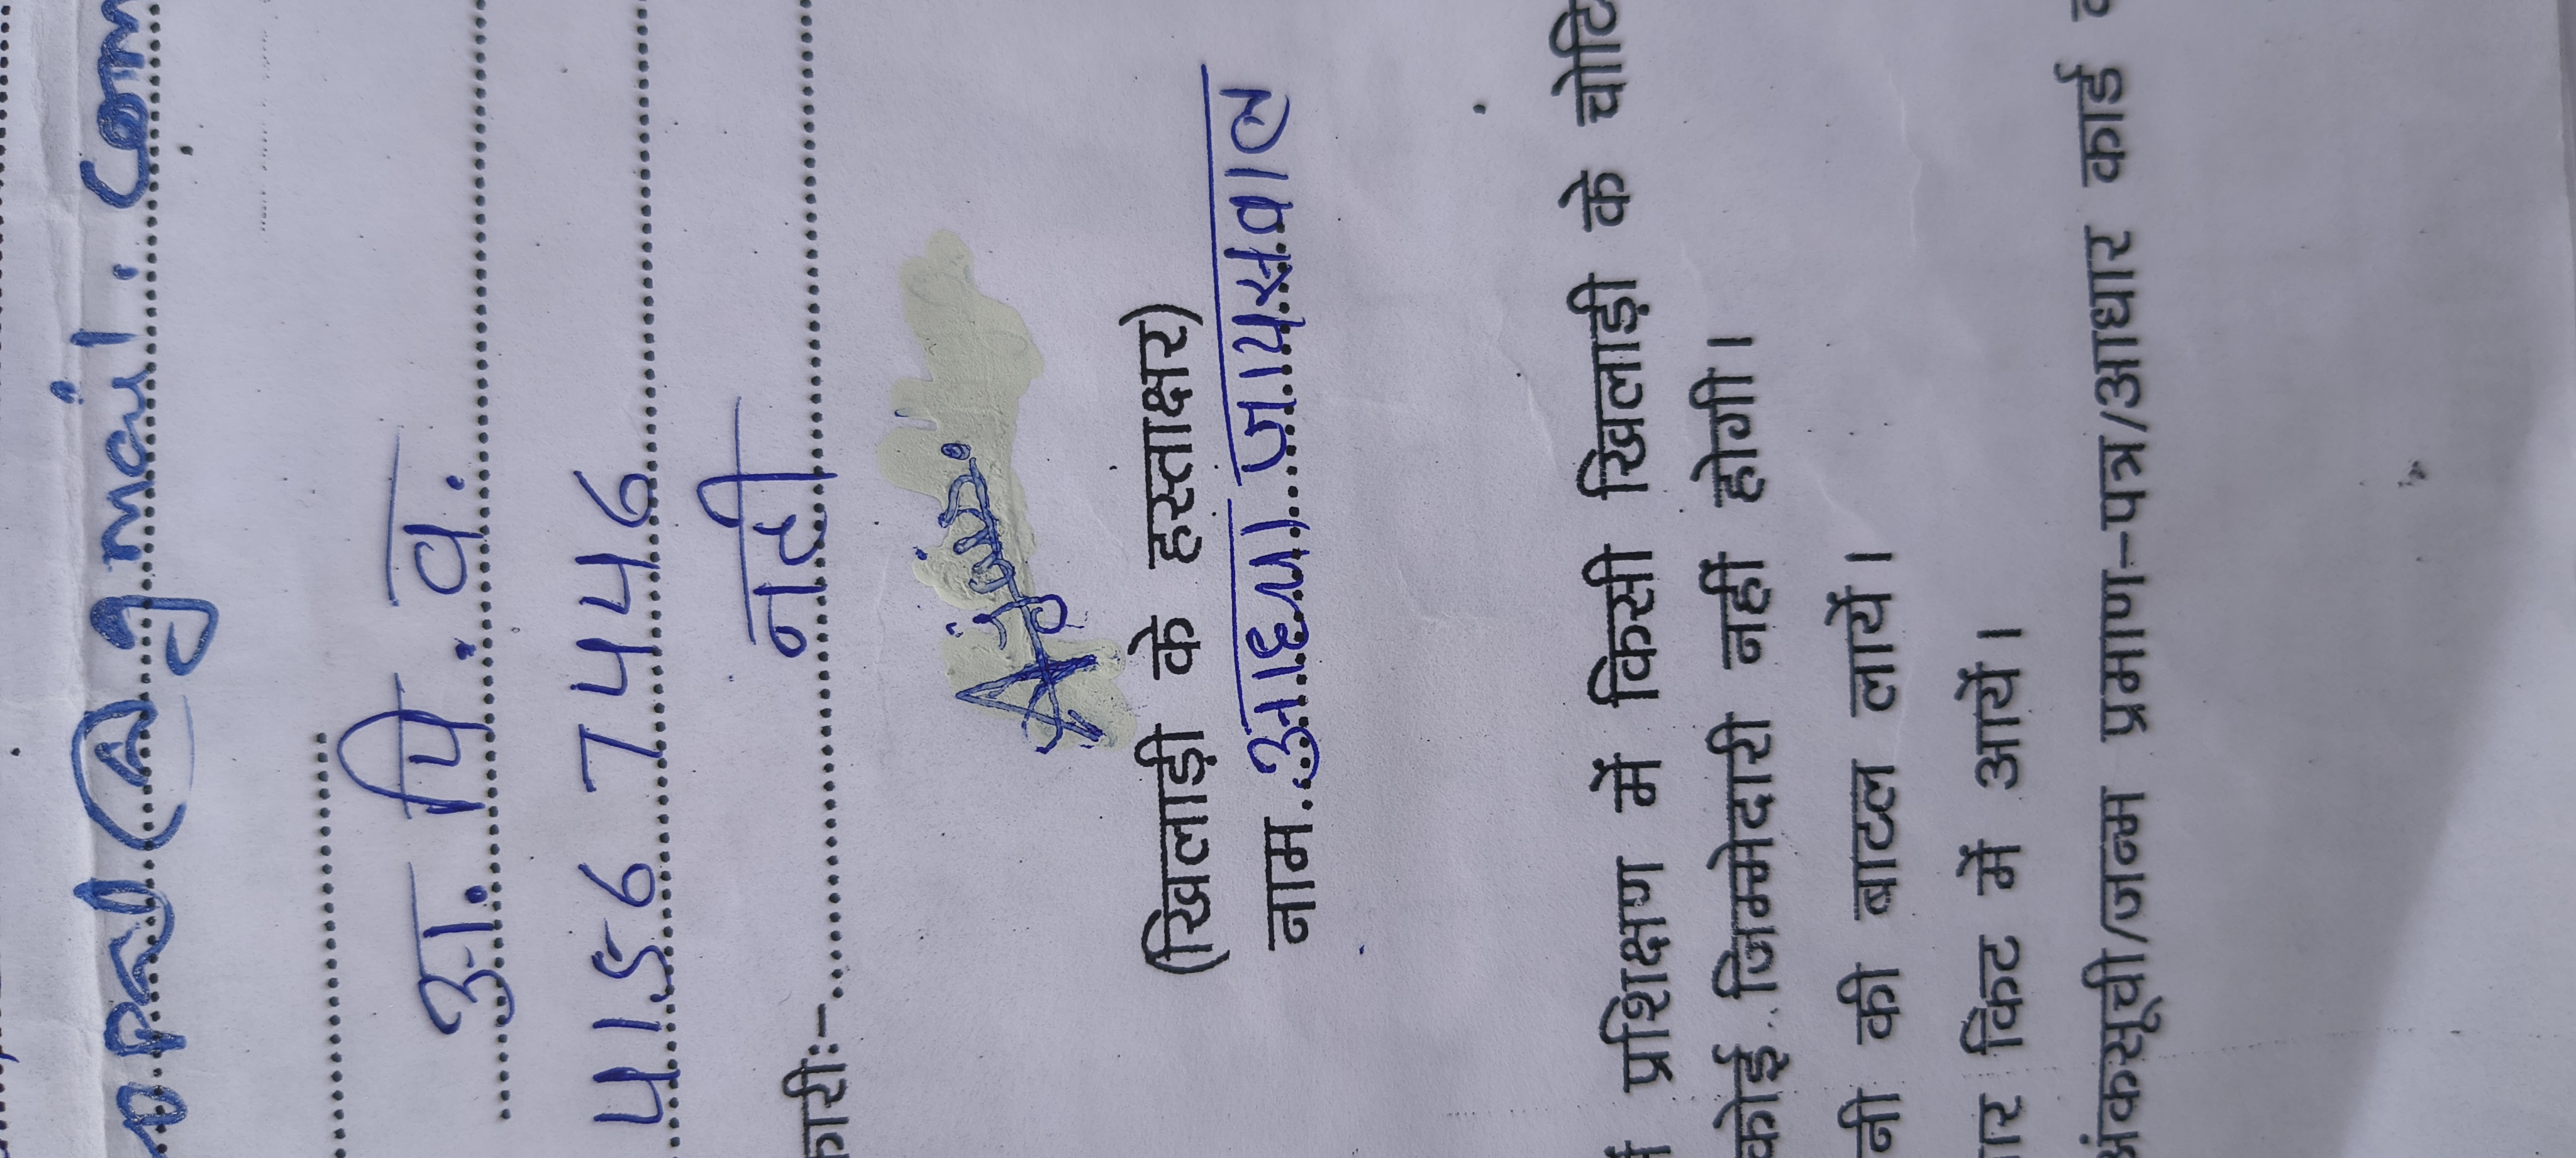 pal@gmail.com
आ. पि. व.
4156 7446
कारीः-
नही
(खिलाड़ी के हस्ताक्षर)
नाम. आद्या जायसवाल
प्रशिक्षण में किसी खिलाड़ी के चोटि
कोई जिम्मेदारी नही होगी।
नी की बाटल लायें।
ार किट में आयें।
अंकसूची/जन्म प्रमाण-पत्र/आधार कार्ड व